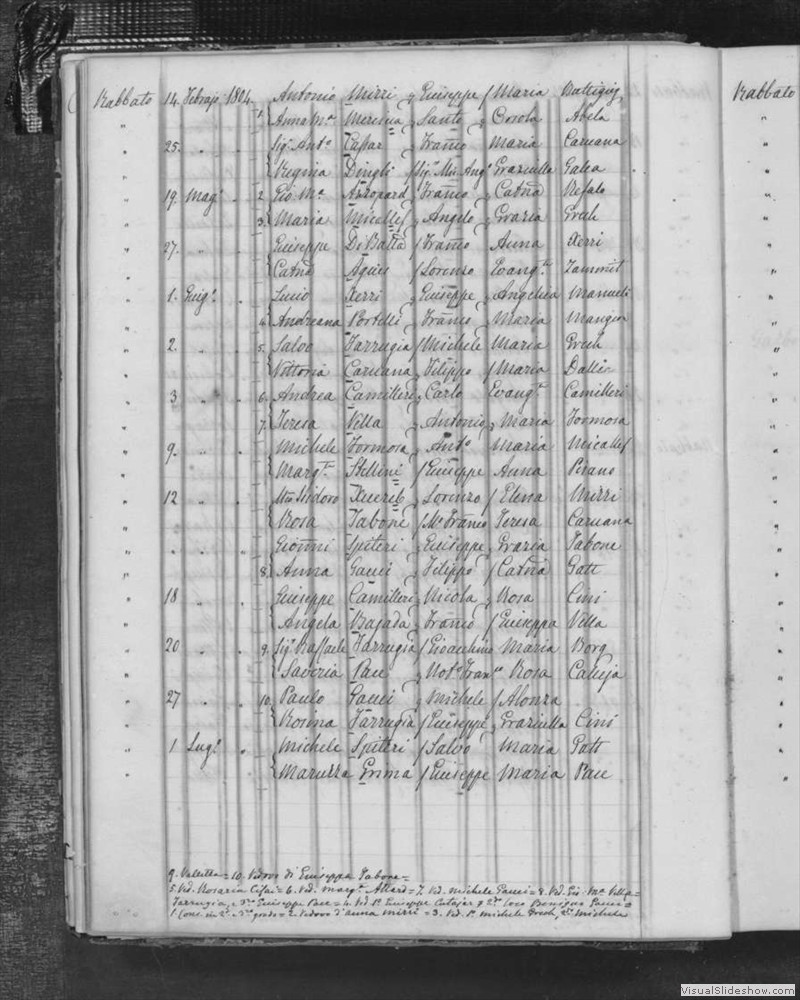 Rabbato 14. Febrajo 1804. Antonio Mirri Giuseppe Maria Rabbato
1. Anna Ma Mercieca Santo Cosola Abela
25. " " Sigr Anto Cassar Franco Maria Caruana
Regina Dingli Graziella Galea
19 Mago " 2. Gio Ma Azzopard Franco Catna Refalo
3. Maria Micallef Angelo Grazia Grech
27. " " Giuseppe Di Batta Franco Anna Xerri
Catna Agius Lorenzo Evangta Zammit
1. Giugo " Lucio Xerri Giuseppe Angelica
4. Andreana Portelli Franco Maria Mangion
2. " " 5. Salvo Farrugia Michele Maria Grech
Vittoria Caruana Filippo Maria Dalli
3 " " 6. Andrea Camilleri Carlo Evangta Camilleri
7. Teresa Vella Antonio Maria Formosa
9. " " Michele Formosa Anto Maria Micallef
Margta Stellini Giuseppe Anna Pisano
12 " " Isidoro Xuereb Lorenzo Elena Mirri
Rosa Tabone Franco Teresa Caruana
" " " Gionni Spiteri Giuseppe Grazia Tabone
8. Anna Gauci Filippo Catna Gatt
18 " " Giuseppe Camilleri Nicola Rosa Cini
Angela Bajada Franco Giuseppa Vella
20 " " 9. Sigr Raffaele Farrugia Gioacchino Maria Borg
Saveria Pace Noto Rosa Calleja
27 " " 10. Paulo Gauci Michele Alonza
Rosina Farrugia Giuseppe Graziella Cini
" 1 Lugo " Michele Spiteri Salvo Maria Gatt
Maruzza Grima Giuseppe Maria Pace
9. Valletta = 10. Vedovo di Giuseppa Tabone =
5. Ved. Rosaria = 6. Ved. Margta = 7. Ved. Michele Gauci = 8. Ved. Gio. Ma Vella =
Farrugia, Giuseppe Pace = 4. Ved. Giuseppe Cutajar
1. Cons. in 2. 3. grado = 2. Vedovo d'Anna Mirri = 3. Ved. Michele Grech, Michele
VisualSlideshow.com